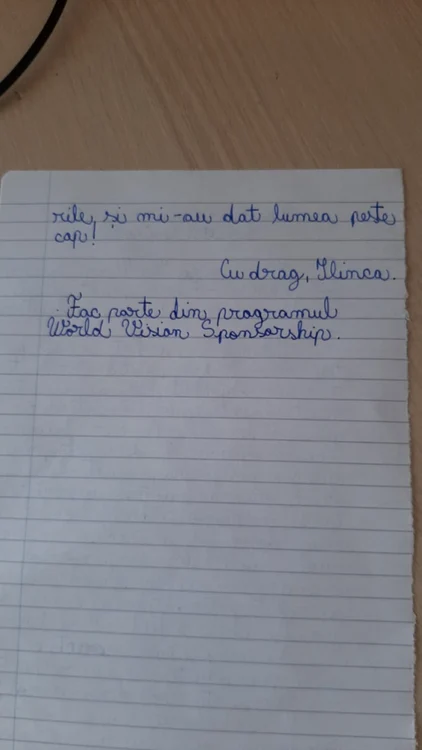 rile, și mi-au dat lumea peste
cap!
Cu drag, Ilinca.
Fac parte din programul
World Vision Sponsorship.